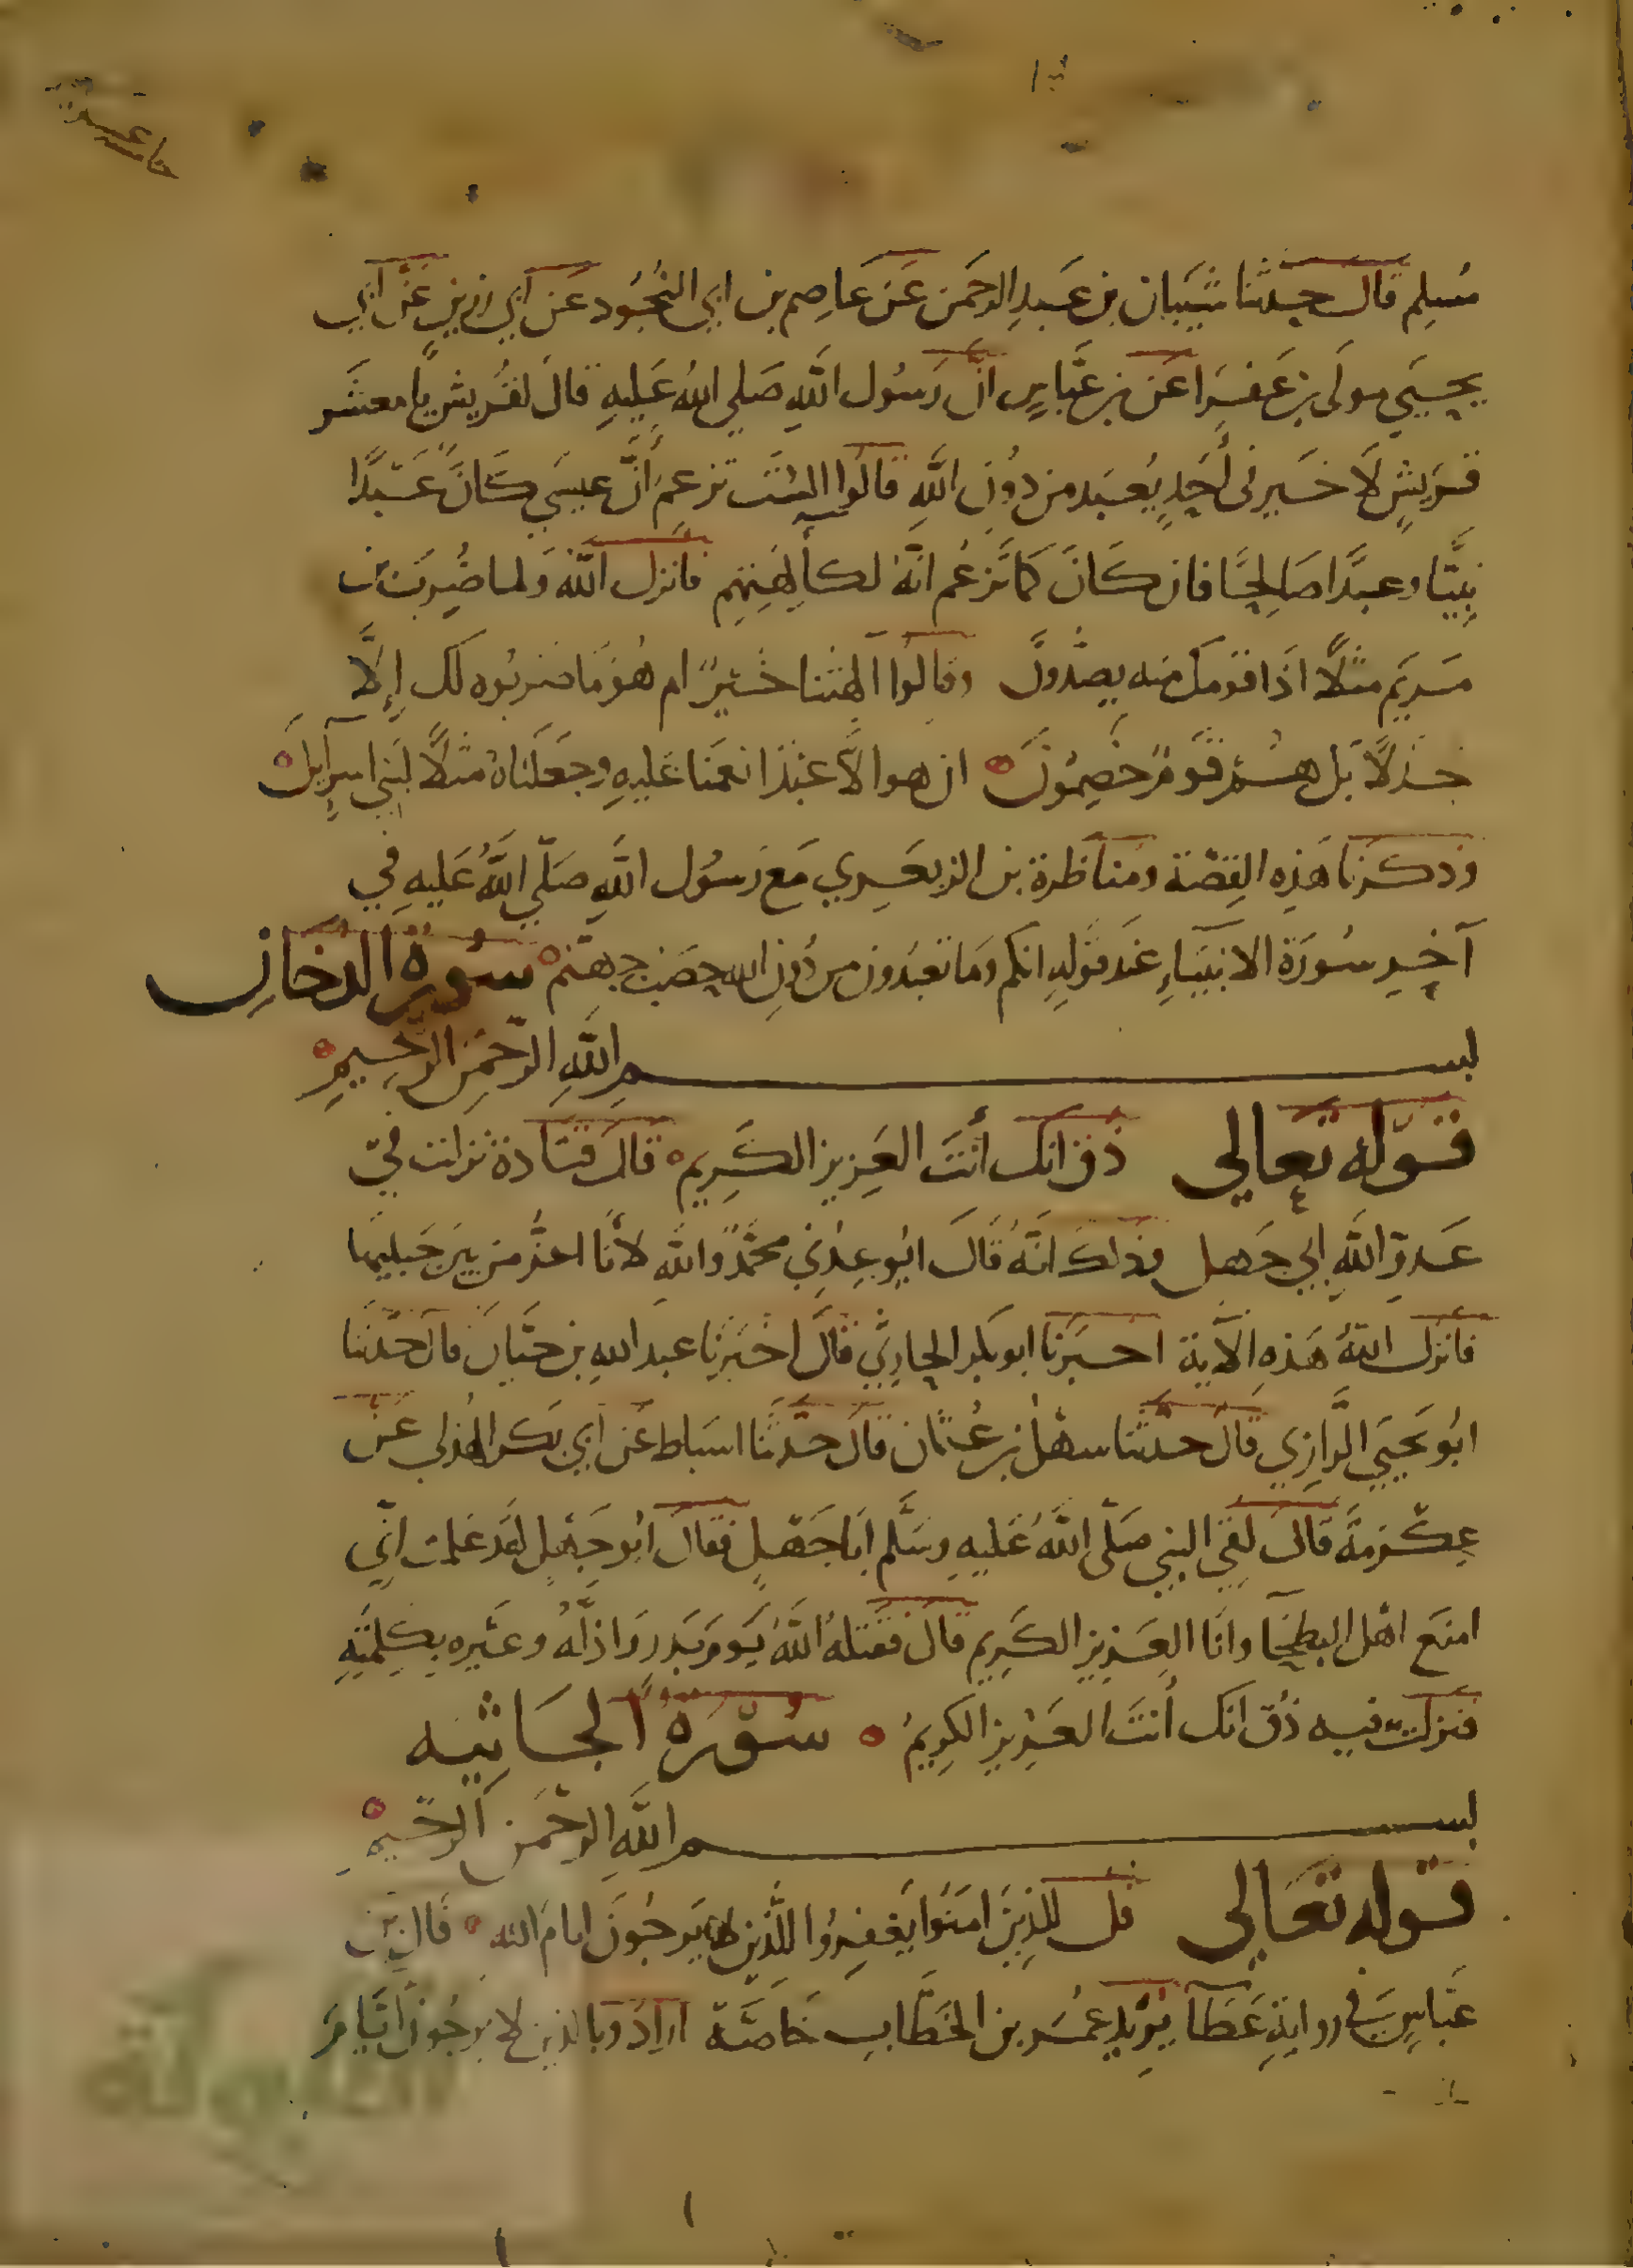 خامسة
مُسلِم قال حدثنا شيبان بن عَبدِ الرحمَن عَن عَاصِم بن ابي النُّجُود عَن ابي رزينٍ عَن ابي
يحيَي مولَى بن عَفرَا عَن بن عبَّاسٍ انّ رَسُول اللَّهِ صَلي اللهُ عَليهِ قالَ لقُريش يا معشر
قريشٍ لَا خَير في أحدٍ يُعبَد من دُونِ اللَّهِ قالوا اليسَت تزعمَ أَنَّ عِيسَي كَانَ عَبْدًا
نبيَّا وعبدًا صَالحًا فان كَانَ كمَا تزعُم انَّهُ لكآلِهتِهِم فانزل اللَّه وَلما ضُربَ بن
مَريَم مثلًا اذَا قومك منه يصدُّونَ وقالُوا آلهتنا خَيرٌ ام هُو مَا ضربُوه لك إلَّا
جدَلاً بَل هُم قَومٌ خَصِمُونَ ان هو الّا عبدٌ انعَمنا عَليهِ وجعَلنَاهُ مثلًا لبَني اسرآيلَ
وذكرنا هَذِه القِصَّة ومُناظرة بن الزبعري مَع رَسُول اللَّهِ صَلّي اللَّهُ عَليهِ في
آخِرِ سُورَة الانبيَاءِ عندَ قولِهِ انكم وَما تعبُدُون من دُونِ الله حصَب جهنّم سُورة الدخانِ
بسم اللَّهِ الرّحمَنِ الرّحيمِ
قوله تعالي ذُق انك أنتَ العَزيز الكَريم قالَ قتادة نزلت في
عَدوِّ اللَّهِ ابي جَهل وذلك انَّهُ قَالَ ايُوعِدُني محمَّدٌ وَاللهِ لأَنَا اعزُّ من بين جَبليها
فانزَلَ اللهُ هَذِهِ الآية اخبَرنا ابو بكر الحارثي قالَ اخبَرنا عبد اللهِ بن حيَّان قال حدّثنا
ابُو يَحيَي الرَّازِي قال حدّثنا سهلُ بن عُثمان قال حدّثنا اسبَاط عَن ابي بَكر الهُذلي عَن
عِكرمَة قالَ لقيَ النبي صَلّى اللَّهُ عَليهِ وسَلَّم ابَا جَهْلٍ فقالَ ابُو جَهلٍ لقَد عَلمت انّي
امنَع اهْل البطحا وانَا العَزيز الكَريم قال فقَتلهُ اللَّهُ يَومَ بَدر وَاذلَّهُ وعَيَّره بكلِمَتِهِ
فنزلت فيه ذُق انك أنتَ العَزيز الكريمُ سُورة الجَاثيه
بسم اللَّهِ الرّحمَن الرحيم
قوله تعَالى قل للذِينَ امَنُوا يَغفِرُوا للَّذين لا يَرجُونَ ايامَ الله قَال بن
عَبّاسٍ في روايةِ عَطَآ يُريد عمُر بن الخطَّاب خَاصَّة ارادَ بالذين لا يرجُونَ ايَّامَ